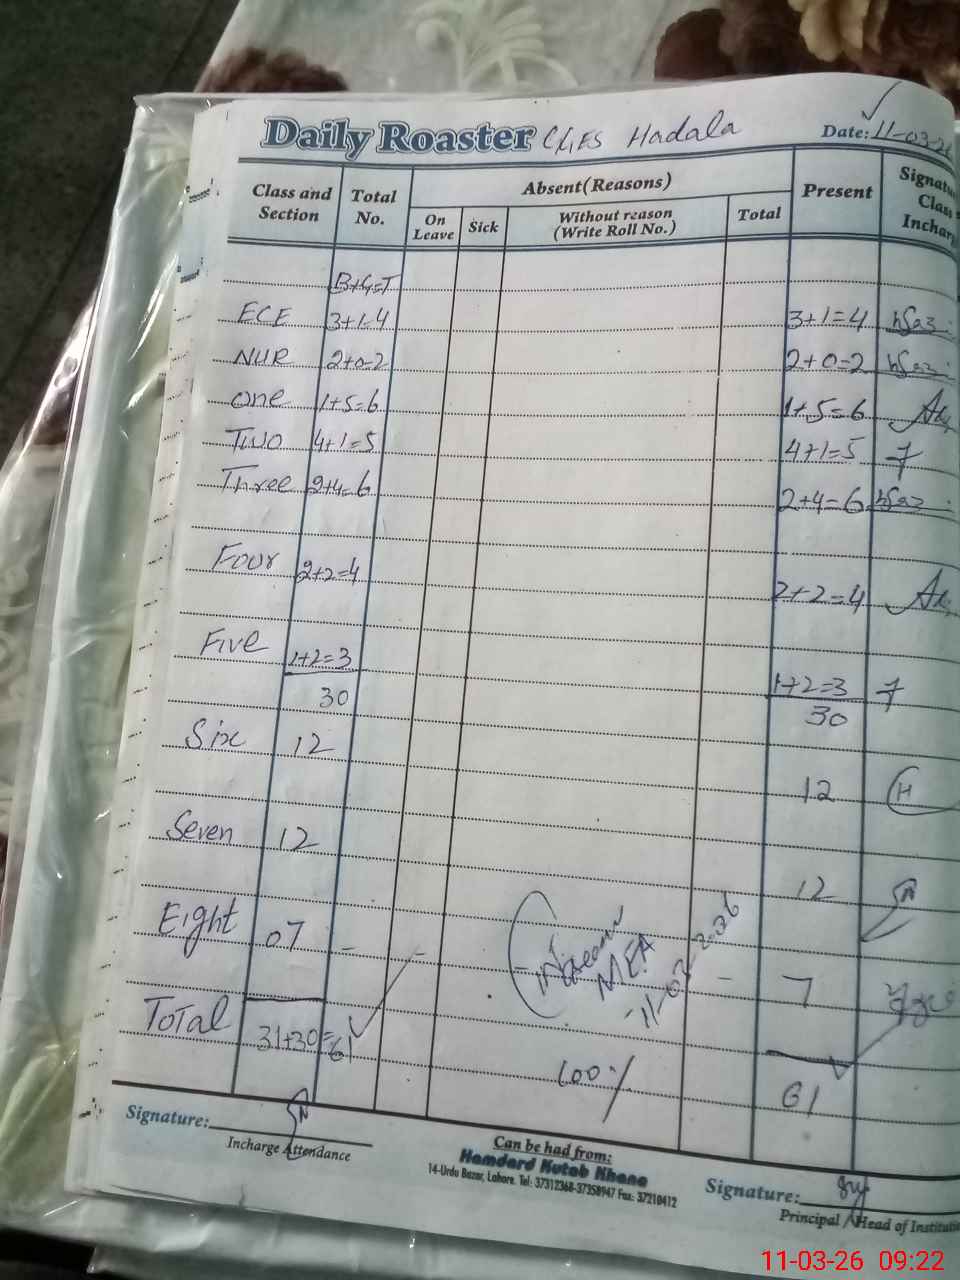 Daily Roaster GGES Hadala Date: 11-03-26
Class and Section Total No. Absent(Reasons) Present Signatu Class Inchar
On Leave Sick Without reason (Write Roll No.) Total
B+G=T
ECE 3+1=4 3+1=4
NUR 2+0=2 2+0=2
One 1+5=6 1+5=6
Two 4+1=5 4+1=5
Three 2+4=6 2+4=6
Four 2+2=4 2+2=4
Five 1+2=3 1+2=3
30 30
Six 12 12 H
Seven 12 12
Eight 07 - - - - 7
MEA
11-03-2026
Total 31+30=61 61
100%
Signature:
Incharge Attendance
Can be had from:
Hamdard Kutab Khana
14-Urdu Bazar, Lahore. Tel: 37312368-37358947 Fax: 37210412
Signature:
Principal / Head of Instituti
11-03-26 09:22